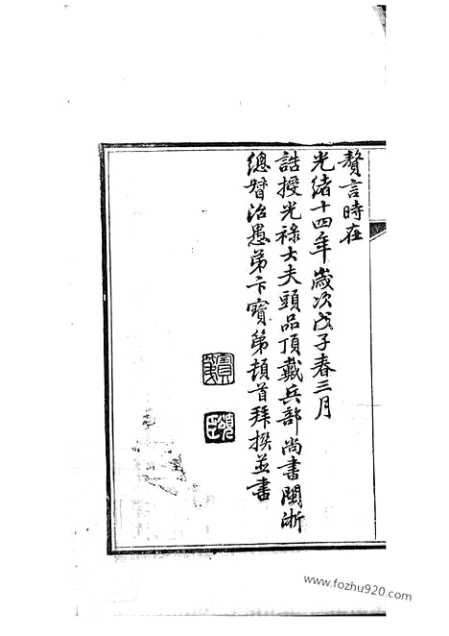 贅言時在
光緒十四年歲次戊子春三月
誥授光祿大夫頭品頂戴兵部尚書閩浙
總督治愚弟卞寶第頓首拜撰並書
www.fozhu920.com